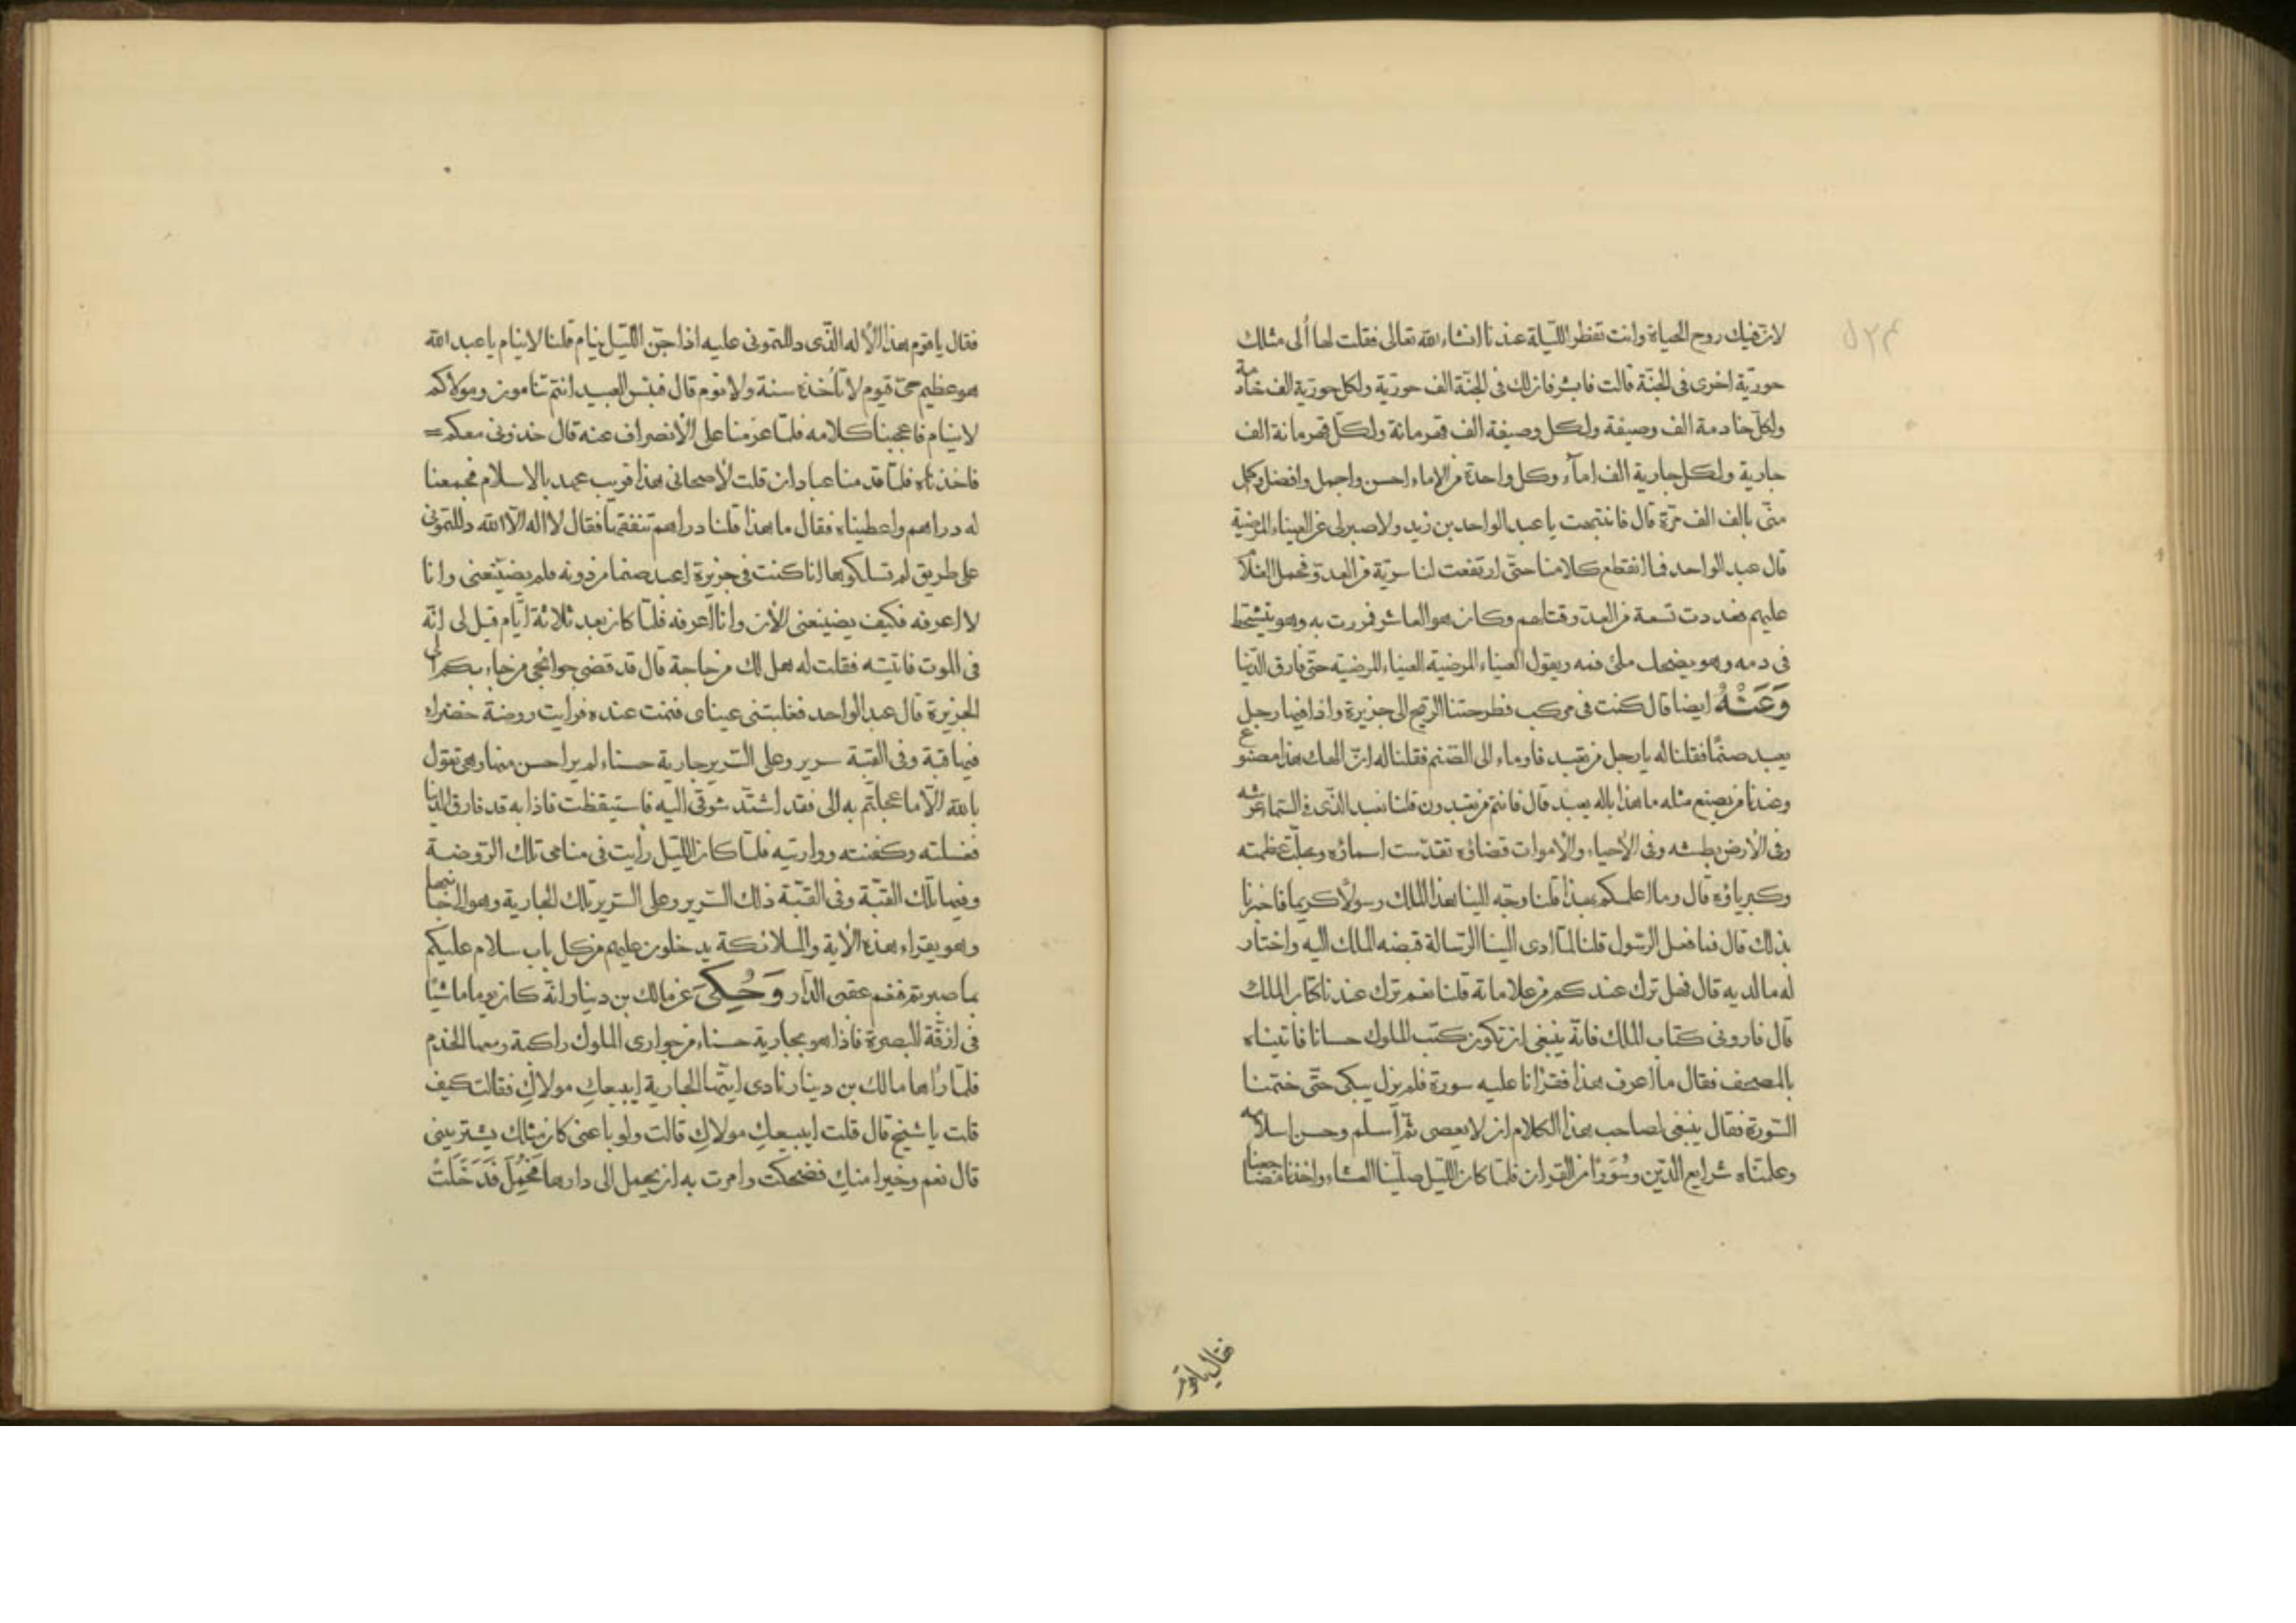 لان فيك روح الحياة وانت تفطر الليلة عندنا انشاء الله تعالى فقلت لها ألى مثلك
حورية اخرى فى الجنة قالت فابشر فان لك فى الجنة الف حورية ولكل حورية الف خادمة
ولكل خادمة الف وصيفة ولكل وصيفة الف قهرمانة ولكل قهرمانة الف
جارية ولكل جارية الف امآء وكل واحدة من الاماء احسن واجمل وافضل واكمل
منى بالف الف مرة قال فانتبهت يا عبد الواحد بن زيد ولا صبر لى عن العيناء المرضية
قال عبد الواحد فما انقطع كلامنا حتى ارتفعت لنا سرية من العدو فحمل الغلام
عليهم فعددت تسعة من العدو قتلهم وكان هو العاشر فمررت به وهو يتشحط
فى دمه وهو يضحك ملئ فمه ويقول العيناء المرضية العيناء المرضية حتى فارق الدنيا
وَعَنْهُ ايضا قال كنت فى مركب فطرحتنا الريح الى جزيرة واذا فيها رجل
يعبد صنمًا فقلنا له يا رجل من تعبد فاوماء الى الصنم فقلنا له ان الهك هذا مصنوع
وعندنا من يصنع مثله ما هذا باله يعبد قال فانتم من تعبدون قلنا نعبد الذى فى السماء عرشه
وفى الارض بطشه وفى الاحياء والاموات قضاؤه تقدست اسماؤه وجلت عظمته
وكبرياؤه قال وما اعلمكم بهذا قلنا وجه الينا هذا الملك رسولاً كريما فاخبرنا
بذلك قال فما فعل الرسول قلنا لما ادى الينا الرسالة قبضه الملك اليه واختار
له ما لديه قال فهل ترك عندكم من علامات قلنا نعم ترك عندنا كتاب الملك
قال فارونى كتاب الملك فانه ينبغى ان تكون كتب الملوك حسانا فاتيناه
بالمصحف فقال ما اعرف هذا فقرانا عليه سورة فلم يزل يبكى حتى ختمنا
السورة فقال ينبغى لصاحب هذا الكلام ان لا يعصى ثم اسلم وحسن اسلامه
وعلمناه شرايع الدين وسُوَرًا من القران فلما كان الليل صلينا العشاء واخذنا مضاجعنا
فقال يا قوم
فقال يا قوم هذا الاله الذى دللتمونى عليه اذا جن الليل ينام قلنا لا ينام يا عبد الله
هو عظيم حى قيوم لا تأخذه سنة ولا نوم قال فبئس العبيد انتم تنامون ومولاكم
لا ينام فاعجبنا كلامه فلما عزمنا على الأنصراف عنه قال خذونى معكم
فاخذناه فلما قدمنا عبادان قلت لأصحابى هذا قريب عهد بالاسلام فجمعنا
له دراهم واعطيناه فقال ما هذا قلنا دراهم تنفقها فقال لا اله الا الله دللتمونى
على طريق لم تسلكوها انا كنت فى جزيرة اعبد صنما من دونه فلم يضيعنى وانا
لا اعرفه فكيف يضيعنى الأن وانا اعرفه فلما كان بعد ثلاثة ايام قيل لى انه
فى الموت فاتيته فقلت له هل لك من حاجة قال قد قضى حوائجى من جاء بكم الى
الجزيرة قال عبد الواحد فغلبتنى عيناى فنمت عنده فرايت روضة خضراء
فيها قبة وفى القبة سرير وعلى السرير جارية حسناء لم ير احسن منها وهى تقول
بالله الا ما عجلتم به الى فقد اشتد شوقى اليه فاستيقظت فاذا به قد فارق الدنيا
فغسلته وكفنته وواريته فلما كان الليل رأيت فى منامى تلك الروضة
وفيها تلك القبة وفى القبة ذلك السرير وعلى السرير تلك الجارية وهو الى جانبها
وهو يقراء هذه الأية والملائكة يدخلون عليهم من كل باب سلام عليكم
بما صبرتم فنعم عقبى الدار وَحُكِىَ عن مالك بن دينار انه كان يوما ماشيًا
فى ازقة البصرة فاذا هو بجارية حسناء من جوارى الملوك راكبة ومعها الخدم
فلما رأها مالك بن دينار نادى ايتها الجارية ايبيعكِ مولاكِ فقالت كيف
قلت يا شيخ قال قلت ايبيعكِ مولاكِ قالت ولو باعنى كان مثلك يشترينى
قال نعم وخيرا منكِ فضحكت وامرت به ان يحمل الى دارها فحُمِلَ فَدَخَلَتْ